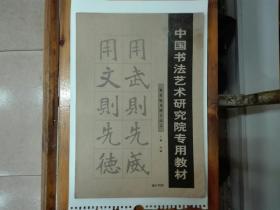 中国书法艺术研究院专用教材
用武則先威
用文則先德